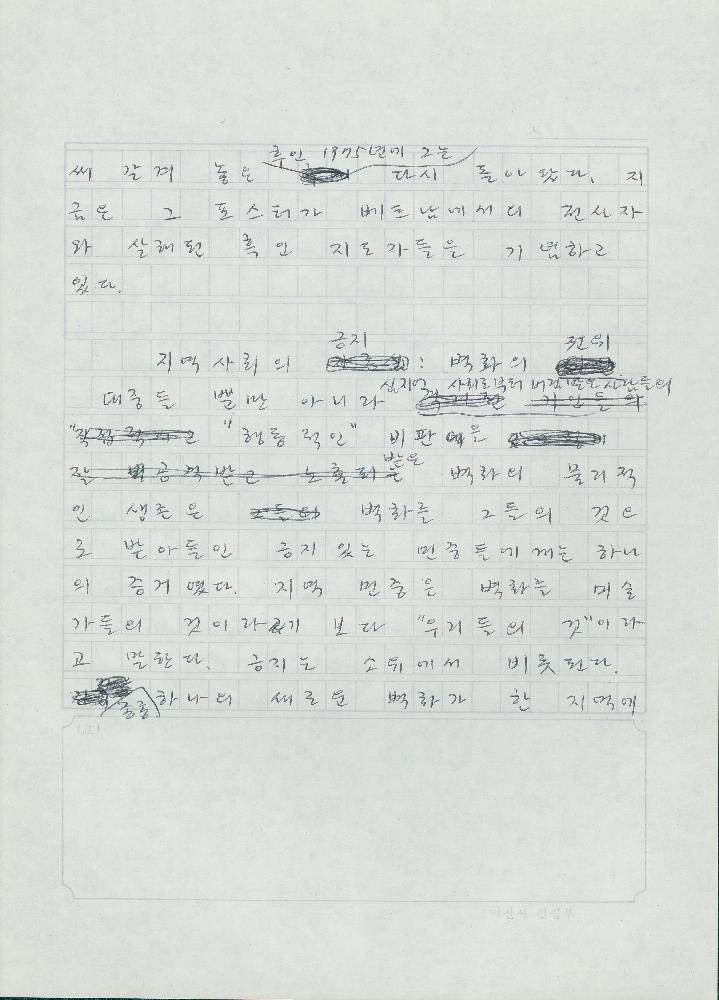 후인 1975년에 그는
써 갈겨 놓은 다시 돌아왔다. 지
금은 그 포스터가 베트남에서의 전사자
와 살해된 흑인 지도자들을 기념하고
있다.
긍지 전위
지역사회의 : 벽화의
심지어 사회로부터 버림받은 사람들의
대중들 뿐만 아니라
"행동적인" 비판
받은
벽화의 물리적
인 생존은 벽화를 그들의 것으
로 받아들인 긍지 있는 민중들에게는 하나
의 증거였다. 지역 민중은 벽화를 미술
가들의 것이라기 보다 "우리들의 것"이라
고 말한다. 긍지는 소위에서 비롯된다.
종종 하나의 새로운 벽화가 한 지역에